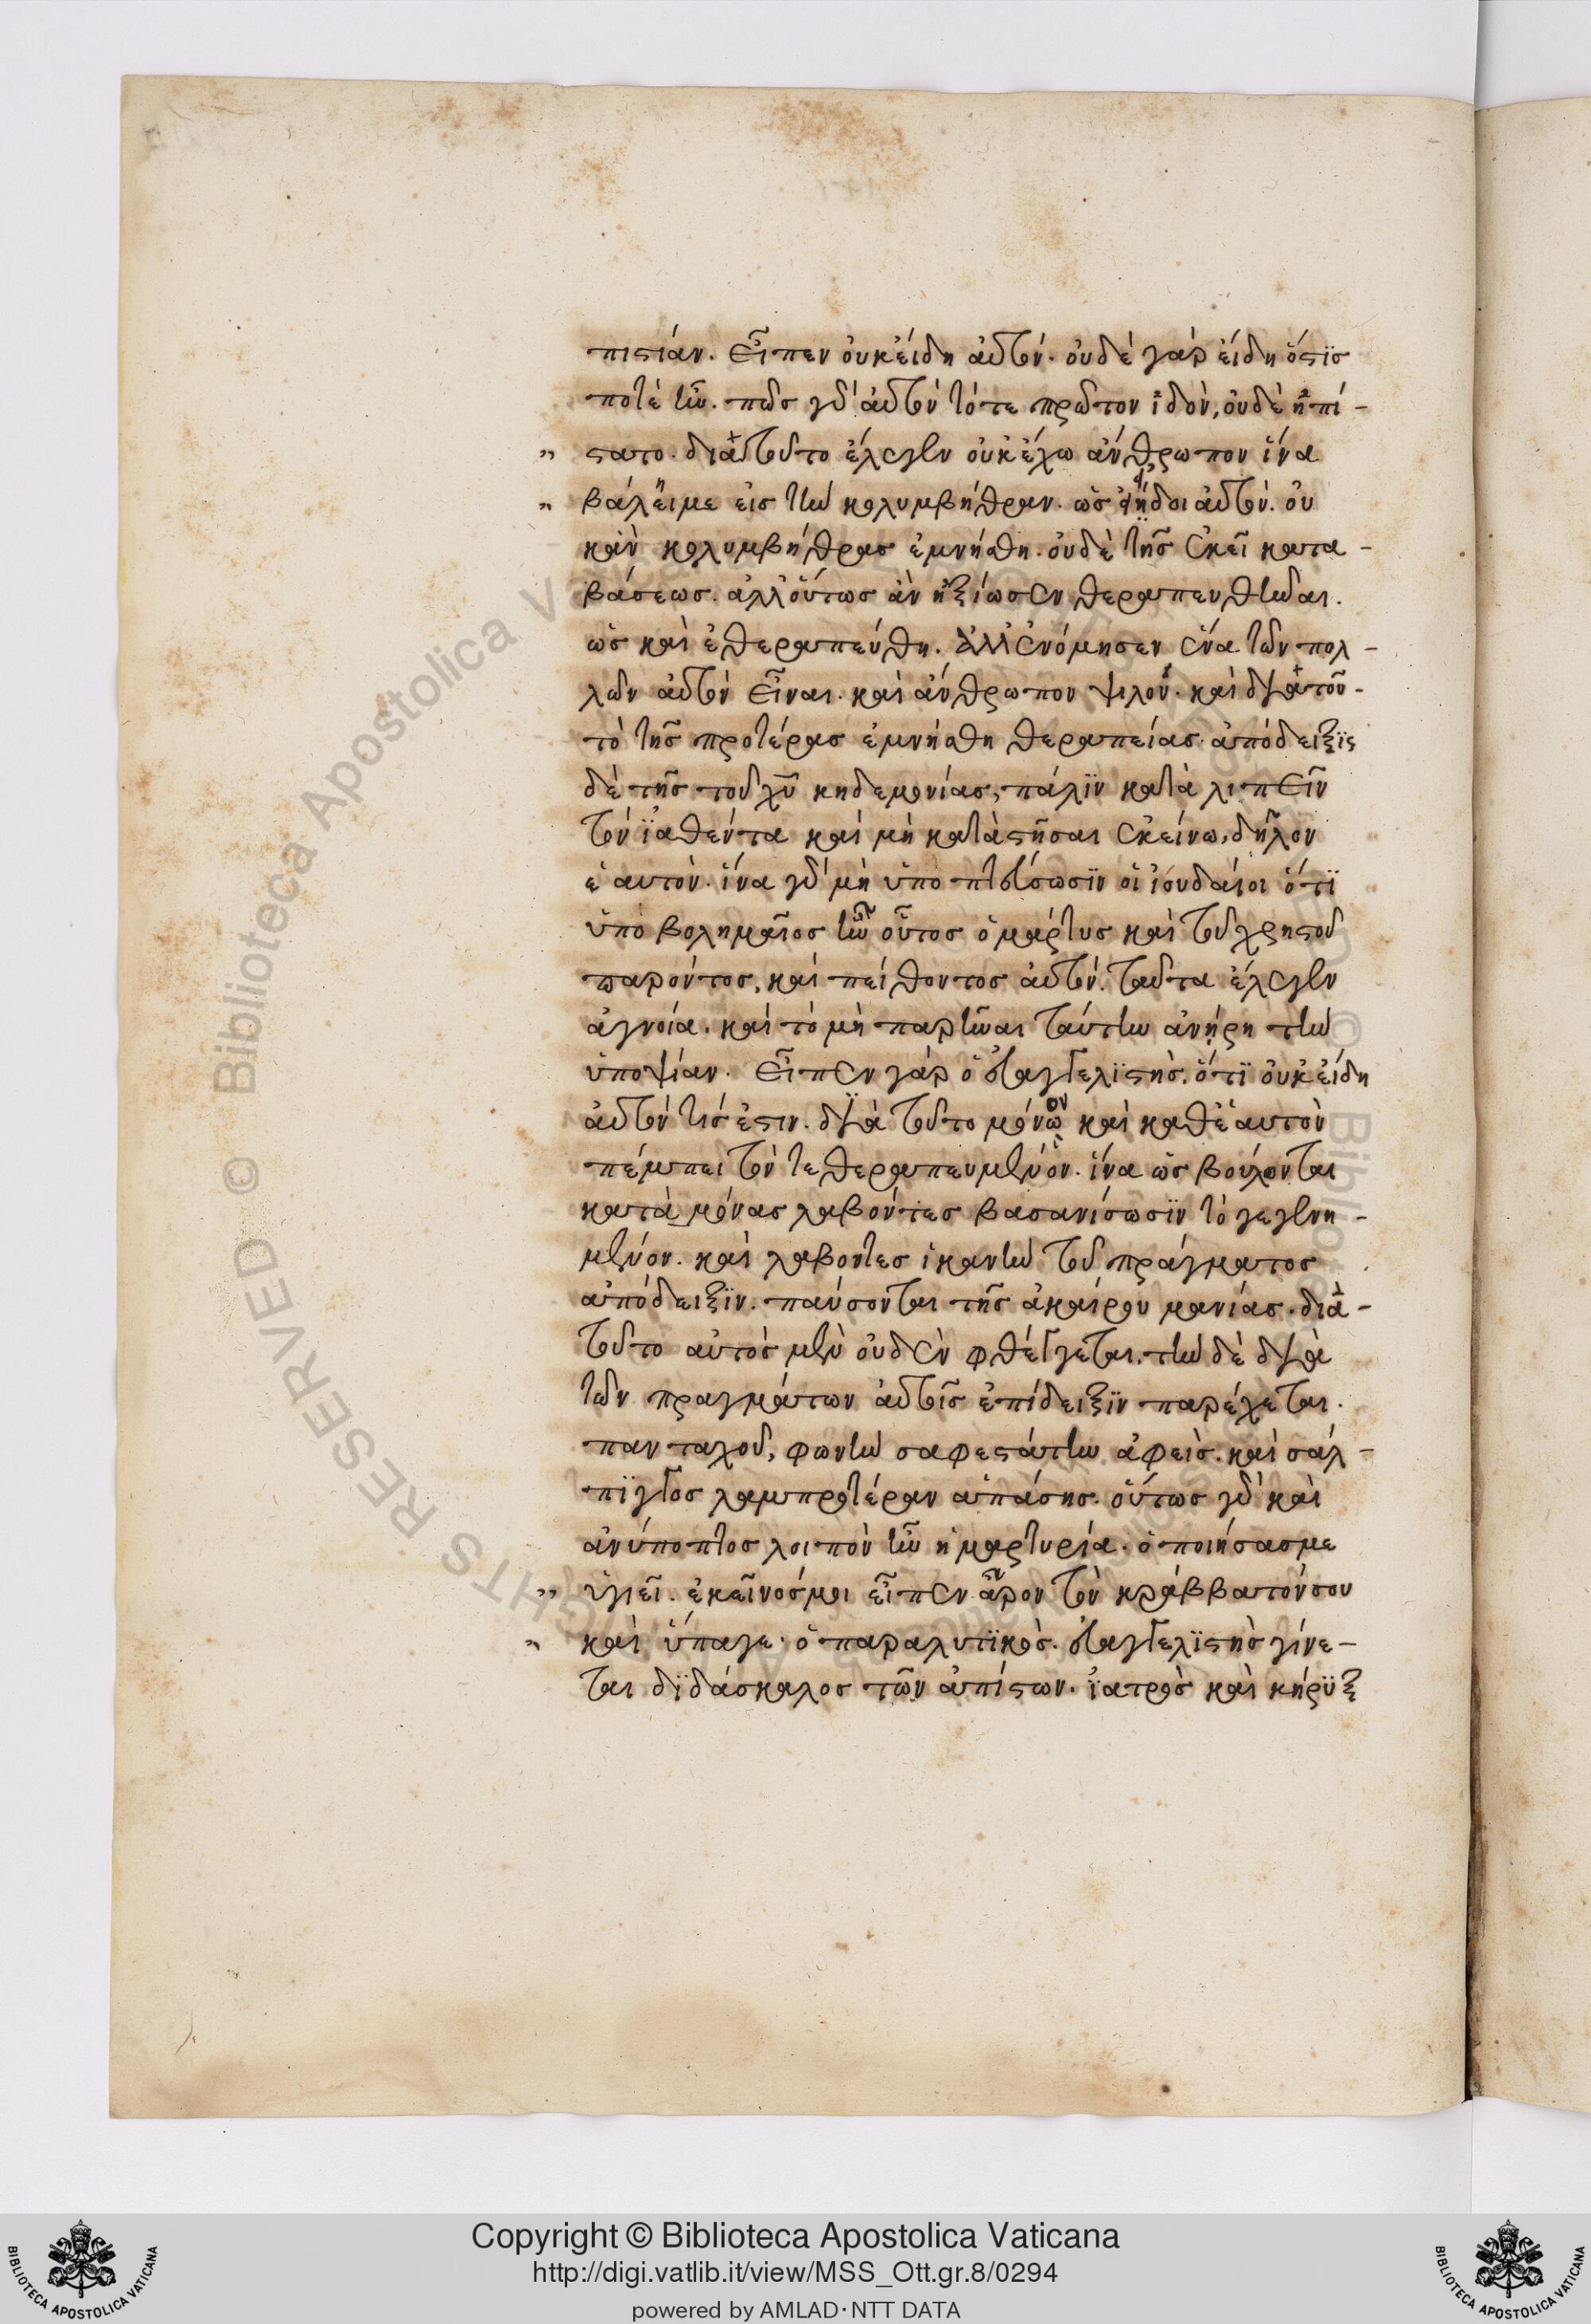 πιστίαν. εἶπεν οὐκ εἴδη αὐτόν. οὐδὲ γὰρ εἴδη ὅστις
ποτὲ ἦν. πῶς γὰρ αὐτὸν τότε πρῶτον ἰδὸν, οὐδὲ ἠπί-
στατο. διὰ τοῦτο ἔλεγεν οὐκ ἔχω ἄνθρωπον ἵνα
βάλει με εἰς τὴν κολυμβήθραν. ὡς αὐτόν. οὐ
κὰν κολυμβήθρας ἐμνήσθη. οὐδὲ τῆς ἐκεῖ κατα-
βάσεως. ἀλλ' οὕτως ἀν ἠξίωσεν θεραπευθῆναι.
ὡς καὶ ἐθεραπεύθη. ἀλλ' ἐνόμησεν ἕνα τῶν πολ-
λῶν αὐτὸν εἶναι. καὶ ἄνθρωπον ψιλόν. καὶ διὰ τοῦ-
το τῆς προτέρας ἐμνήσθη θεραπείας. ἀπόδειξις
δὲ τῆς τοῦ χυ κηδεμονίας, πάλιν καταλιπεῖν
τὸν ἰαθέντα καὶ μὴ καταστῆσαι ἐκείνω, δῆλον
ἑαυτὸν. ἵνα γὰρ μὴ ὑποπτεύσωσιν οἱ ἰουδαῖοι ὅτι
ὑποβολημαῖος ἦν οὗτος ὁ μάρτυς καὶ τοῦ χρηστοῦ
παρόντος, καὶ πείθοντος αὐτόν. ταῦτα ἔλεγεν
ἀγνοία. καὶ τὸ μὴ παρεῖναι ταύτην ἀνήρη τὴν
ὑποψίαν. εἶπεν γὰρ ὁ εὐαγγελιστὴς. ὅτι οὐκ εἴδη
αὐτὸν τίς ἐστιν. διὰ τοῦτο μόνον καὶ καθ' ἑαυτὸν
πέμπει τὸν τεθεραπευμένον. ἵνα ὡς βούλονται
κατὰ μόνας λαβόντες βασανίσωσιν τὸ γεγενη-
μένον. καὶ λαβοντες ἱκανὴν τοῦ πράγματος
ἀπόδειξιν. παύσονται τῆς ἀκαίρου μανίας. διὰ-
τοῦτο αὐτὸς μὲν οὐδὲν φθέγγεται. τὴν δὲ διὰ
τῶν πραγμάτων αὐτοῖς ἐπίδειξιν παρέχεται.
πανταχοῦ, φωνὴν σαφεστάτην ἀφεὶς. καὶ σάλ-
πιγγος λαμπροτέραν ἁπάσης. οὕτως γὰρ καὶ
ἀνύποπτος λοιπὸν ἦν ἡ μαρτυρία. ὁ ποιήσας με
ὑγιεῖ. ἐκεῖνός μοι εἶπεν ἆρον τὸν κράββατόν σου
καὶ ὕπαγε. ὁ παραλυτικὸς. εὐαγγελιστὴς γίνε-
ται διδάσκαλος τῶν ἀπίστων. ἰατρὸς καὶ κήρυξ
Copyright © Biblioteca Apostolica Vaticana
http://digi.vatlib.it/view/MSS_Ott.gr.8/0294
powered by AMLAD·NTT DATA